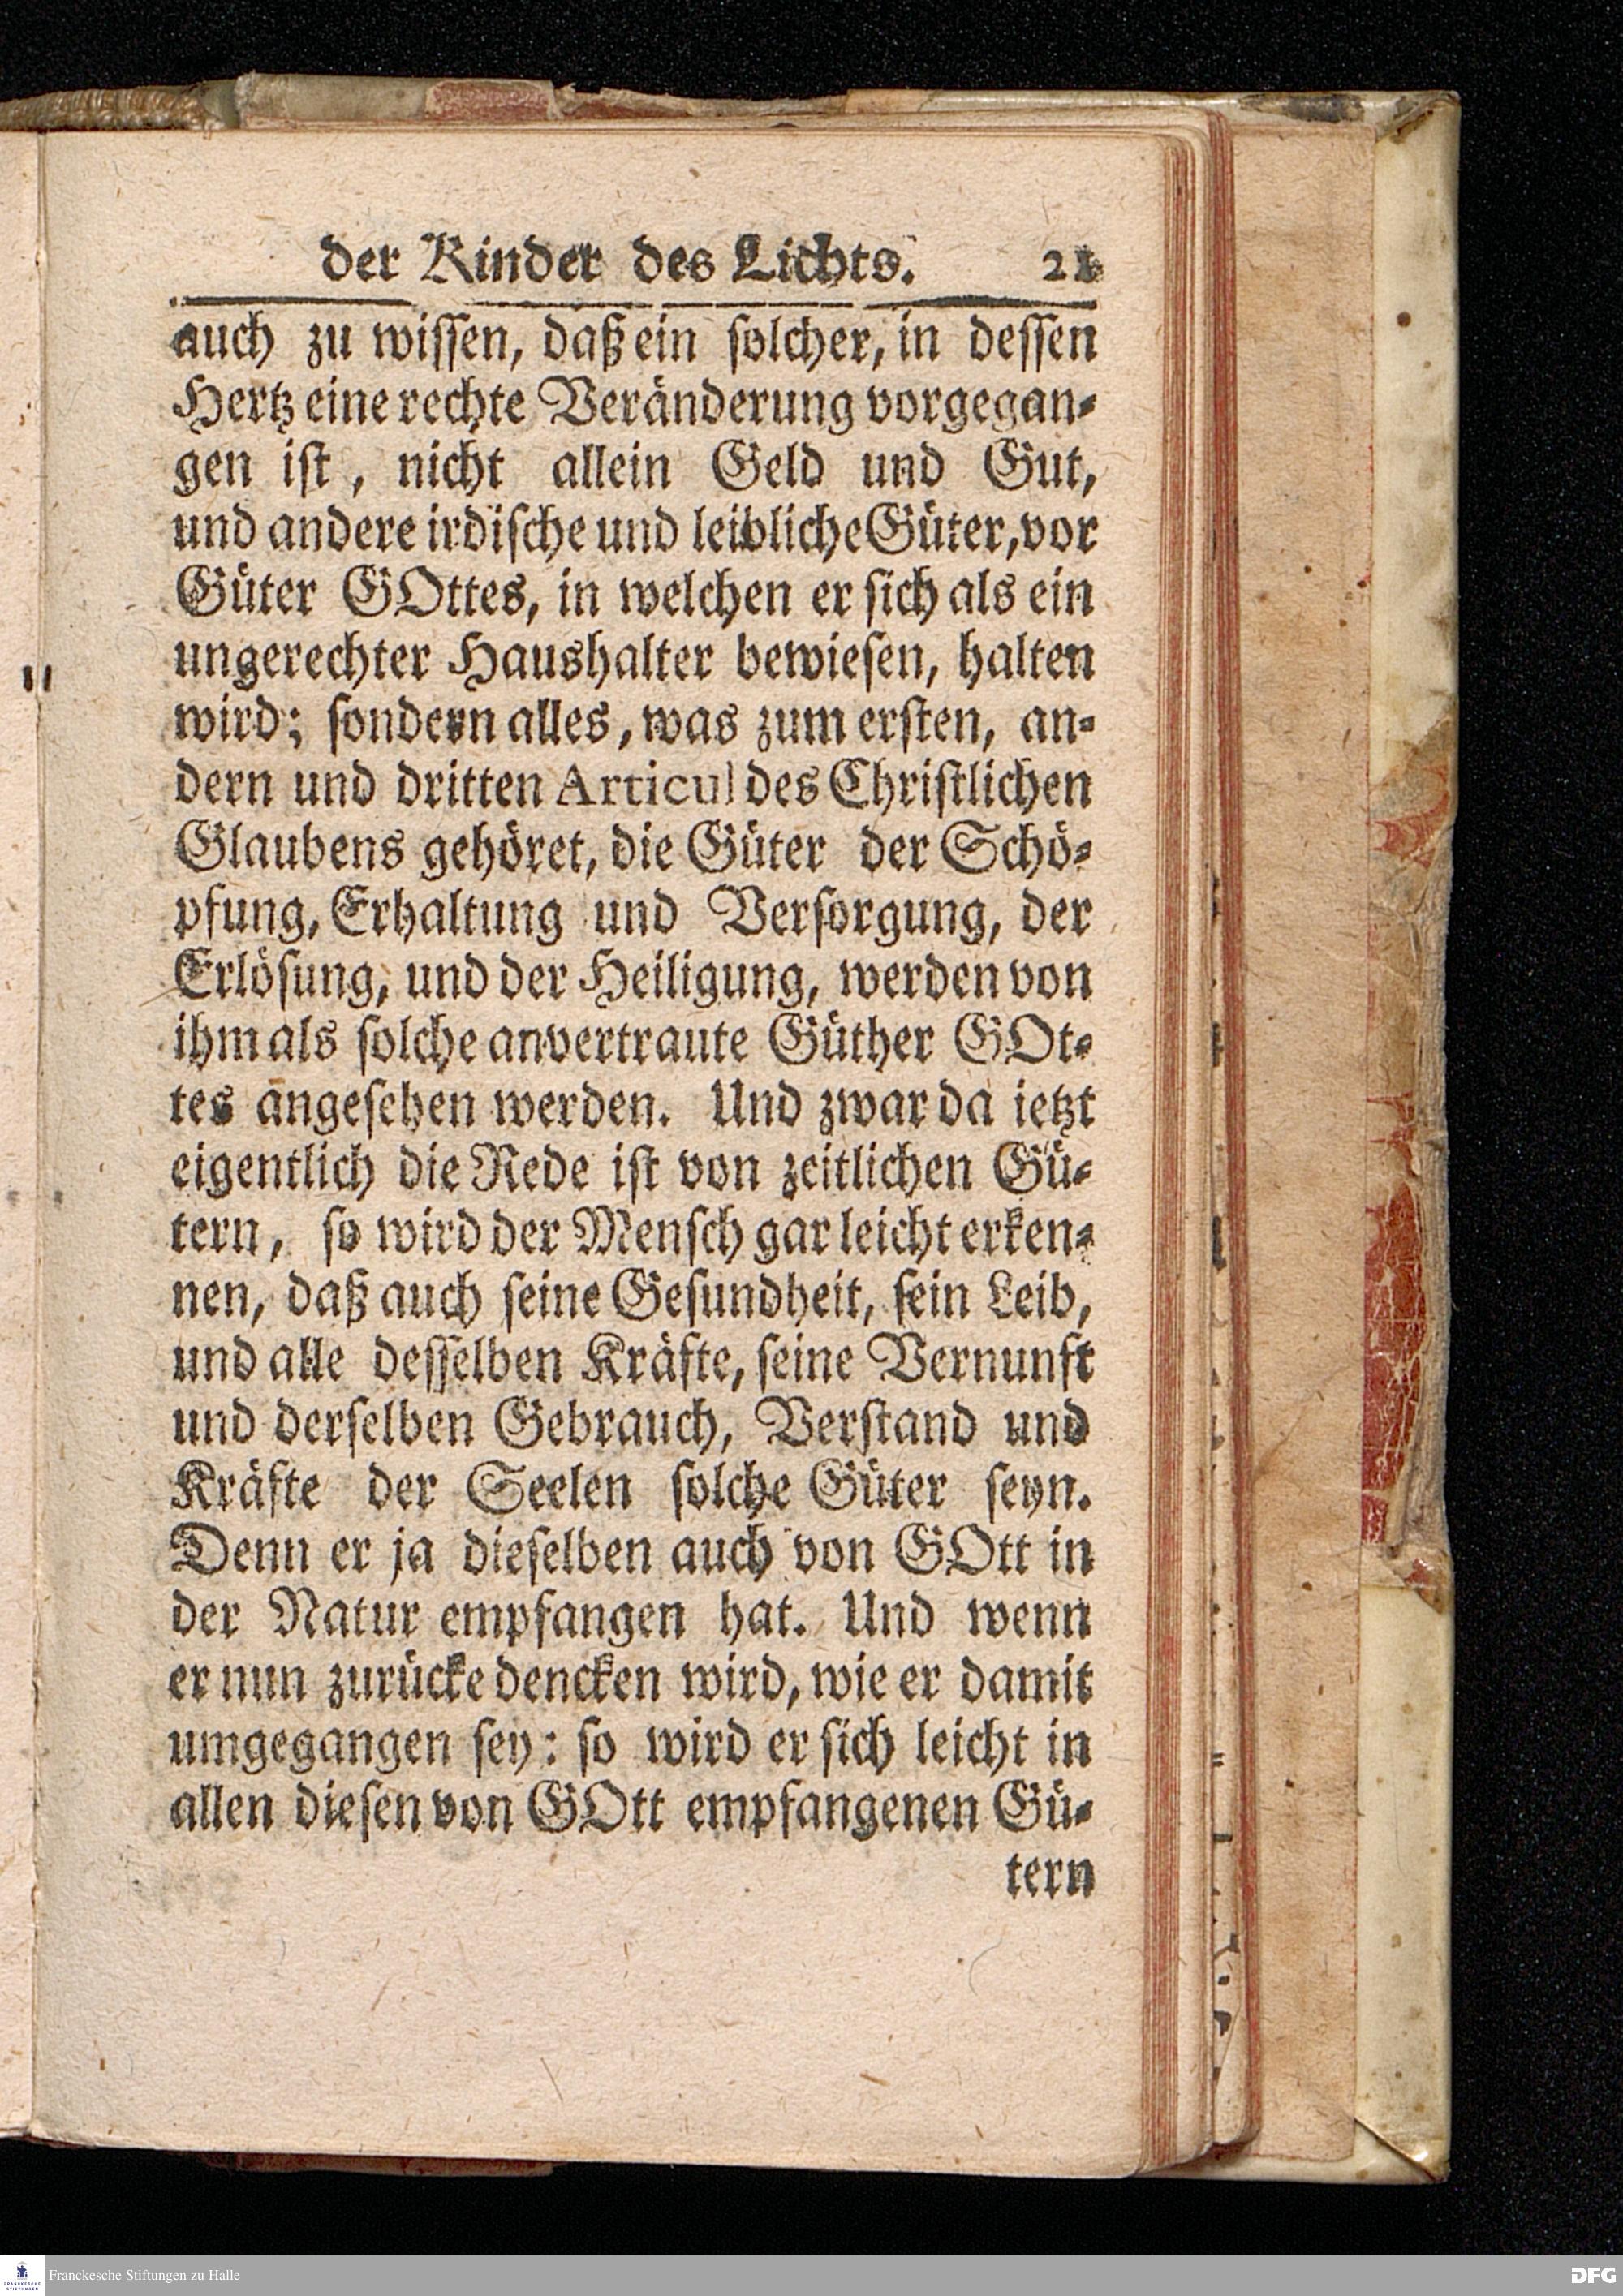 der Kinder des Lichts. 21
auch zu wissen, daß ein solcher, in dessen
Hertz eine rechte Veränderung vorgegan-
gen ist, nicht allein Geld und Gut,
und andere irdische und leibliche Güter, vor
Güter GOttes, in welchen er sich als ein
ungerechter Haushalter bewiesen, halten
wird; sondern alles, was zum ersten, an-
dern und dritten Articul des Christlichen
Glaubens gehöret, die Güter der Schö-
pfung, Erhaltung und Versorgung, der
Erlösung, und der Heiligung, werden von
ihm als solche anvertraute Güther GOt-
tes angesehen werden. Und zwar da ietzt
eigentlich die Rede ist von zeitlichen Gü-
tern, so wird der Mensch gar leicht erken-
nen, daß auch seine Gesundheit, sein Leib,
und alle desselben Kräfte, seine Vernunft
und derselben Gebrauch, Verstand und
Kräfte der Seelen solche Güter seyn.
Denn er ja dieselben auch von GOtt in
der Natur empfangen hat. Und wenn
er nun zurücke dencken wird, wie er damit
umgegangen sey: so wird er sich leicht in
allen diesen von GOtt empfangenen Gü-
tern
FRANCKESCHE STIFTUNGEN
Franckesche Stiftungen zu Halle
DFG